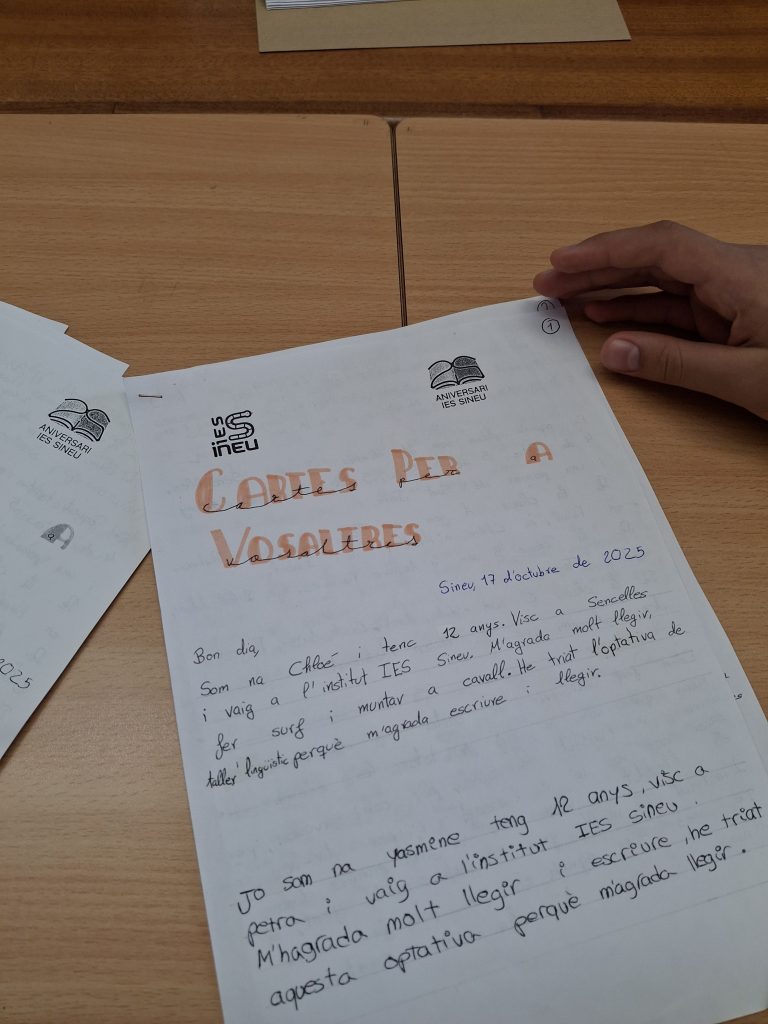 ANIVERSARI
IES SINEU
a
2025
1
1
IES
INEU
ANIVERSARI
IES SINEU
CARTES PER A
cartes per a
VOSALTRES
vosaltres
Sineu, 17 d'octubre de 2025
Bon dia,
Som na Chloé i tenc 12 anys. Visc a Sencelles
i vaig a l'institut IES Sineu. M'agrada molt llegir,
fer surf i muntar a cavall. He triat l'optativa de
taller lingüístic perquè m'agrada escriure i llegir.
Jo som na yasmine teng 12 anys, visc a
petra i vaig a l'institut IES Sineu.
M'hagrada molt llegir i escriure, he triat
aquesta optativa perquè m'agrada llegir.